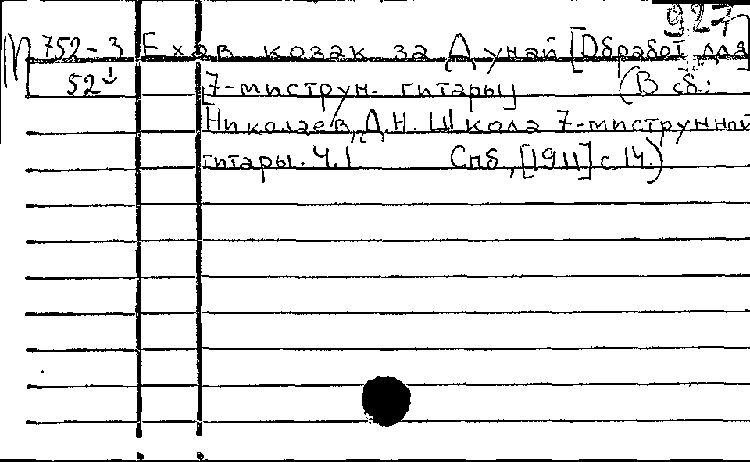 927
М 752-3 Ехав козак за Дунай [Обработ. для
52 7-миструн. гитары] (В сб.:
Николаев, Д.Н. Школа 7-миструнной
гитары. Ч.1 Спб., [1911] с 14.)